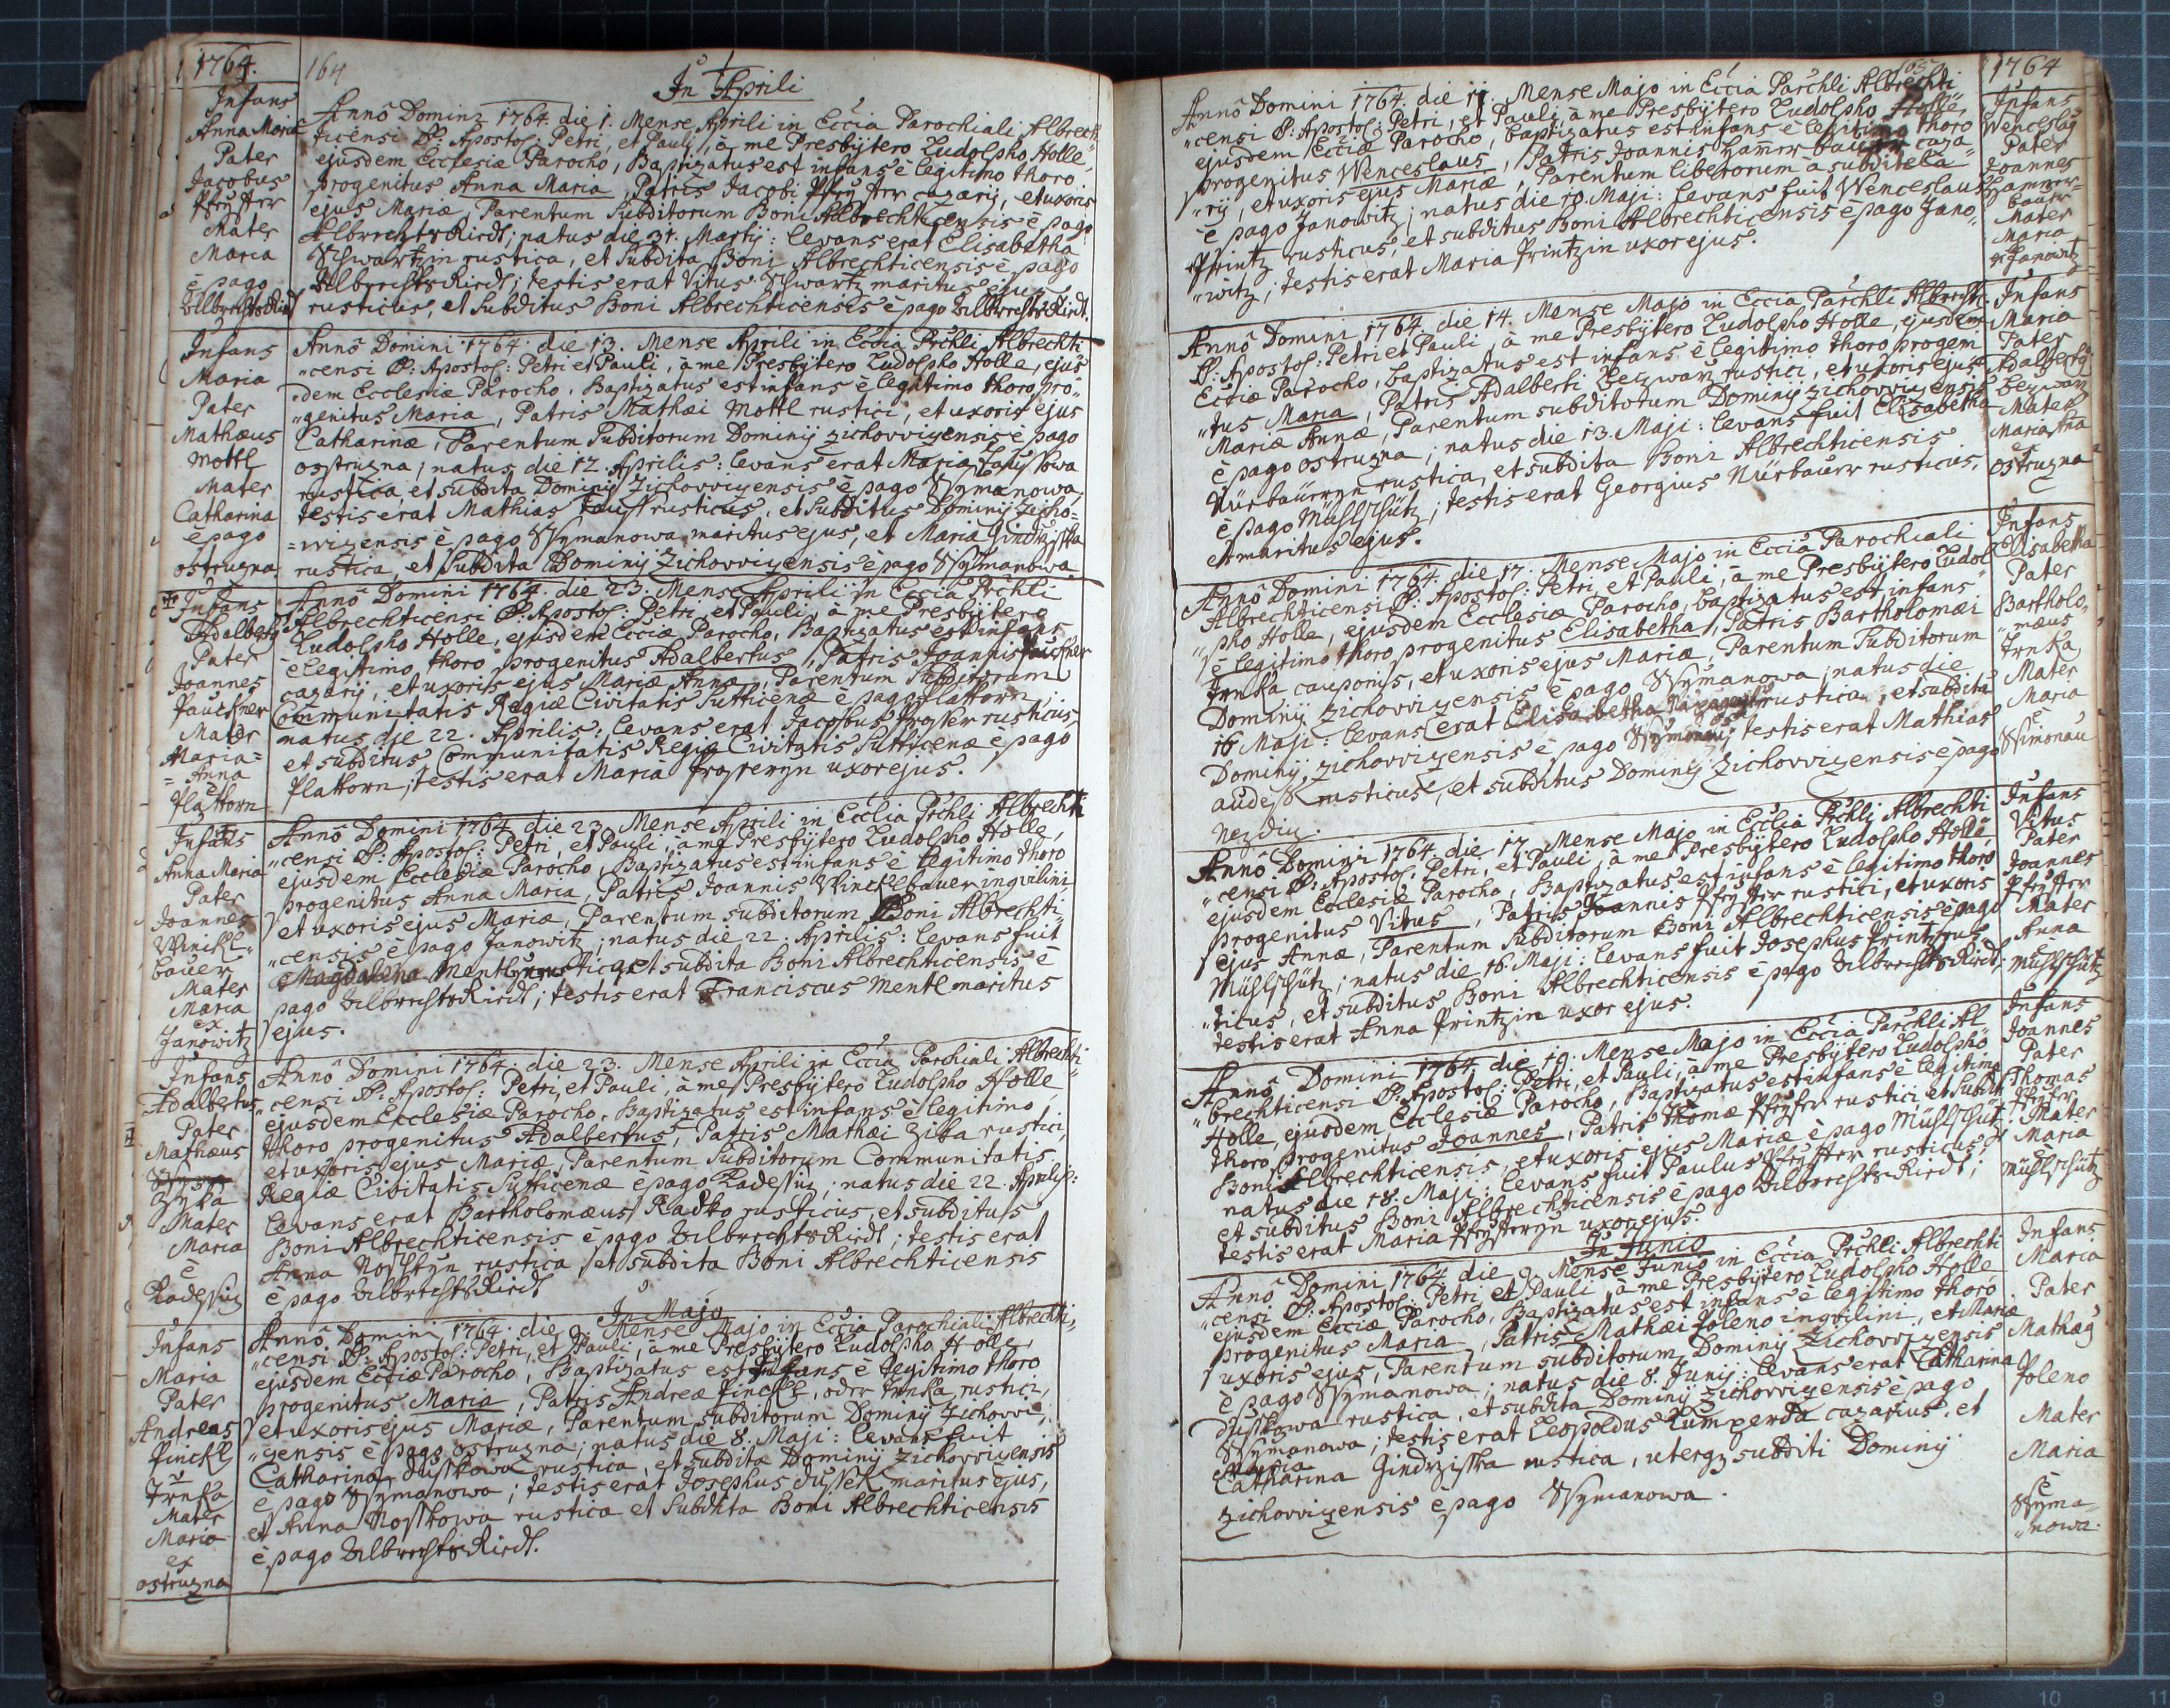 1764.
164
In Aprili
Infans
Anna Maria
Pater
Jacobus
Pfeyffer
Mater
Maria
è pago
AlbrechtsRiedt
Anno Domini 1764. die 1. Mense Aprili in Eccia Parochiali Albrech-
ticensi SS: Apostol: Petri, et Pauli, à me Presbytero Ludolpho Holle
ejusdem Ecclesiæ Parocho, Baptizatus est infans è legitimo thoro
progenitus Anna Maria, Patris Jacobi cazarij, et uxoris
ejus Mariæ, Parentum Subditorum Boni Albrechticensis è pago
AlbrechtsRiedt; natus die 31. Martij: levans erat Elisabetha
Schwartzin rustica, et Subdita Boni Albrechticensis è pago
AlbrechtsRiedt; testis erat Vitus Schwartz maritus ejus
rusticus, et Subditus Boni Albrechticensis è pago AlbrechtsRiedt.
Infans
Maria
Pater
Mathæus
Mottl
Mater
Catharina
è pago
ostruzna
Anno Domini 1764. die 13. Mense Aprili in Eccia Prchli Albrechti
"censi SS: Apostol: Petri et Pauli, à me Presbytero Ludolpho Holle, ejus
"dem Ecclesiæ Parocho, Baptizatus est infans è legitimo thoro pro-
"genitus Maria, Patris Mathæi Mottl rustici, et uxoris ejus
Catharinæ, Parentum Subditorum Dominij Zichovvizensis è pago
ostruzna; natus die 12. Aprilis: levans erat Maria
rustica, et subdita Dominij Zichovvizensis è pago Ssymanowa,
testis erat Mathias rusticus, et Subditus Dominij Zicho=
=vvizensis è pago Ssymanowa maritus ejus, et Maria Gindrzisska
rustica, et Subdita Dominij Zichovvizensis è pago Ssymanowa.
Infans
Adalbertg
Pater
Joannes
Paucksner
Mater
Maria=
=Anna
è
Plattorn
Anno Domini 1764. die 23. Mense Aprili in Eccia Prchli
Albrechticensi SS: Apostol: Petri et Pauli, à me Presbytero
Ludolpho Holle, ejusdem Ecciæ Parocho, Baptizatus est infans
è legitimo thoro progenitus Adalbertus, Patris Joannis
cazarij, et uxoris ejus Mariæ Annæ, Parentum Subditorum
Communitatis Regiæ Civitatis Sutticenæ è pago Plattorn;
natus die 22. Aprilis: levans erat Jacobus rusticus,
et subditus Communitatis Regiæ Civitatis Sutticenæ è pago
Plattorn; testis erat Maria uxor ejus.
Infans
Anna Maria
Pater
Joannes
Winckl=
bauer
Mater
Maria
ex
Janowitz
Anno Domini 1764. die 23. Mense Aprili in Ecclia Prchli Albrechti
"censi SS: Apostol: Petri, et Pauli, à me Presbytero Ludolpho Holle,
ejusdem Ecclesiæ Parocho, Baptizatus est infans è legitimo thoro
progenitus Anna Maria, Patris Joannis Wincklbauer ingvilini
et uxoris ejus Mariæ, Parentum subditorum Boni Albrechti-
"censis è pago Janowitz; natus die 22. Aprilis: levans fuit
Magdalena rustica, et subdita Boni Albrechticensis è
pago AlbrechtsRiedt; testis erat Franciscus Mentl maritus
ejus.
Infans
Adalbertus
Pater
Mathæus
Zyka
Mater
Maria
è
Radessiz
Anno Domini 1764. die 23. Mense Aprili in Eccia Parchiali Albrechti-
"censi SS: Apostol: Petri, et Pauli, à me Presbytero Ludolpho Holle,
ejusdem Ecclesiæ Parocho, Baptizatus est infans è legitimo
thoro progenitus Adalbertus, Patris Mathæi Zika rustici,
et uxoris ejus Mariæ, Parentum Subditorum Communitatis
Regiæ Civitatis Sutticenæ è pago Radessiz; natus die 22. Aprilis:
levans erat Bartholomæus Radko rusticus, et subditus
Boni Albrechticensis è pago AlbrechtsRiedt; testis erat
Anna rustica, et subdita Boni Albrechticensis
è pago AlbrechtsRiedt
In Majo
Infans
Maria
Pater
Andreas
Pinckl
Trnka
Mater
Maria
ex
ostruzna
Anno Domini 1764. die 9. Mense Majo in Eccia Parochiali Albrechti-
"censi SS: Apostol: Petri, et Pauli, à me Presbytero Ludolpho Holle,
ejusdem Ecciæ Parocho, Baptizatus est Infans è legitimo thoro
progenitus Maria, Patris Andreæ Pinckl, oder Trnka, rustici,
et uxoris ejus Mariæ, Parentum subditorum Dominij Zichovvi-
"zensis è pago ostruzna; natus die 8. Maji: levans fuit
Catharina Dusskowa rustica, et subdita Dominij Zichovvizensis
è pago Ssymanowa; testis erat Josephus Dussek maritus ejus,
et Anna Nosskowa rustica et Subdita Boni Albrechticensis
è pago AlbrechtsRiedt.
165
1764
Anno Domini 1764. die 11. Mense Majo in Eccia Parchli Albrechti
"censi SS: Apostol: Petri, et Pauli, à me Presbytero Ludolpho Holle,
ejusdem Ecciæ Parocho, baptizatus est infans è legitimo thoro
progenitus Wenceslaus, Patris Joannis Hammerbauer caza-
"rij, et uxoris ejus Mariæ, Parentum liberorum à subditela
è pago Janowitz; natus die 10. Maji: levans fuit Wenceslaus
Printz rusticus, et subditus Boni Albrechticensis è pago Jano-
"witz; testis erat Maria Printzin uxor ejus.
Infans
Wenceslag
Pater
Joannes
Hammer=
bauer
Mater
Maria
ex Janowitz
Anno Domini 1764. die 14. Mense Majo in Eccia Parchli Albrecht.
SS. Apostol: Petri et Pauli, à me Presbytero Ludolpho Holle, ejusdem
Ecciæ Parocho, baptizatus est infans è legitimo thoro progeni
"tus Maria, Patris Adalberti Bezwarz rustici, et uxoris ejus
Mariæ Annæ, Parentum subditorum Dominij Zichovvizensis
è pago ostruzna; natus die 13. Maji: levans fuit Elisabetha
Nürbaueryn rustica, et subdita Boni Albrechticensis
è pago Mühlschütz; testis erat Georgius Nürbauer rusticus,
et maritus ejus.
Infans
Maria
Pater
Adalbertg
Bezwarz
Mater
Maria Ana
ex
ostruzna
Anno Domini 1764. die 17. Mense Majo in Eccia Parochiali
Albrechticensi SS: Apostol: Petri, et Pauli, à me Presbytero Ludol
"pho Holle, ejusdem Ecclesiæ Parocho, baptizatus est infans
è legitimo thoro progenitus Elisabetha, Patris Bartholomæi
Trnka cauponis, et uxoris ejus Mariæ, Parentum Subditorum
Dominij Zichovvizensis è pago Ssymanowa; natus die
16 Maji: levans erat Elisabetha rustica, et subdita
Dominij Zichovvizensis è pago testis erat Mathias
rusticus, et subditus Dominij Zichovvizensis è pago
Nezdiz.
Infans
Elisabetha
Pater
Bartholo-
"mæus
Trnka
Mater
Maria
è
Ssimonau
Anno Domini 1764. die 17. Mense Majo in Ecclia Prchli Albrechti
"censi SS: Apostol: Petri, et Pauli, à me Presbytero Ludolpho Holle,
ejusdem Ecclesiæ Parocho, Baptizatus est infans è legitimo thoro
progenitus Vitus, Patris Joannis Pfeyffer rustici, et uxoris
ejus Annæ, Parentum Subditorum Boni Albrechticensis è pago
Mühlschütz; natus die 16. Maji: levans fuit Josephus Printz rus
"ticus, et subditus Boni Albrechticensis è pago AlbrechtsRiedt;
testis erat Anna Printzin uxor ejus.
Infans
Vitus
Pater
Joannes
Pfeyffer
Mater
Anna
è
Mühlschütz
Anno Domini 1764. die 19. Mense Majo in Eccia Parchli Al-
"brechticensi SS: Apostol: Petri, et Pauli, à me Presbytero Ludolpho
Holle, ejusdem Ecclesiæ Parocho, Baptizatus est infans è legitimo
thoro progenitus Joannes, Patris Thomæ Pfeyffer rustici et Subdit
Boni Albrechticensis, et uxoris ejus Mariæ è pago Mühlschütz;
natus die 18. Maji: levans fuit Paulus Pfeyffer rusticus,
et subditus Boni Albrechticensis è pago AlbrechtsRiedt;
testis erat Maria Pfeyfferyn uxor ejus.
Infans
Joannes
Pater
Thomas
Pfeyffer
Mater
Maria
è
Mühlschütz
In Junio
Anno Domini 1764. die 9. Mense Junio in Eccia Prchli Albrechti
"censi SS: Apostol: Petri, et Pauli, à me Presbytero Ludolpho Holle
ejusdem Ecciæ Parocho, Baptizatus est infans è legitimo thoro
progenitus Maria, Patris Mathæi Poleno ingvilini, et Mariæ
uxoris ejus, Parentum subditorum Dominij Zichovvizensis
è pago Ssymanowa; natus die 8. Junij: levans erat Catharina
Dusskowa rustica, et subdita Dominij Zichovvizensis è pago
Ssymanowa; testis erat Leopoldus Lumperda cazarius, et
Maria
Catharina Gindrzisska rustica, uterqz subditi Dominij
Zichovvizensis è pago Ssymanowa.
Infans
Maria
Pater
Mathæg
Poleno
Mater
Maria
è
Ssyma-
"nowa.